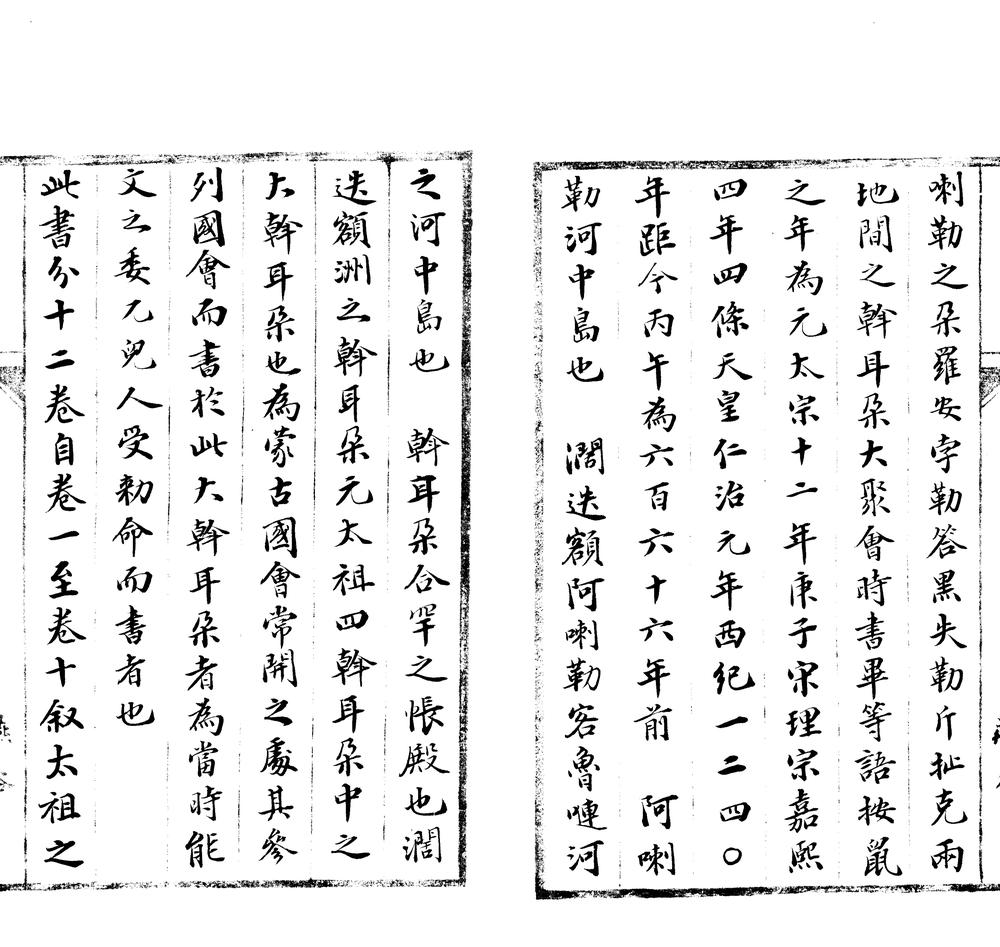 喇勒之朶羅安孛勒答黑失勒斤扯克兩
地間之斡耳朶大聚會時書畢等語按鼠
之年為元太宗十二年庚子宋理宗嘉熙
四年四條天皇仁治元年西紀一二四〇
年距今丙午為六百六十六年前　阿喇
勒河中島也　濶迭額阿喇勒客魯嗹河
之河中島也　斡耳朶合罕之帳殿也濶
迭額洲之斡耳朶元太祖四斡耳朶中之
大斡耳朶也為蒙古國會常開之處其參
列國會而書於此大斡耳朶者為當時能
文之委兀兒人受勅命而書者也
此書分十二卷自卷一至卷十叙太祖之